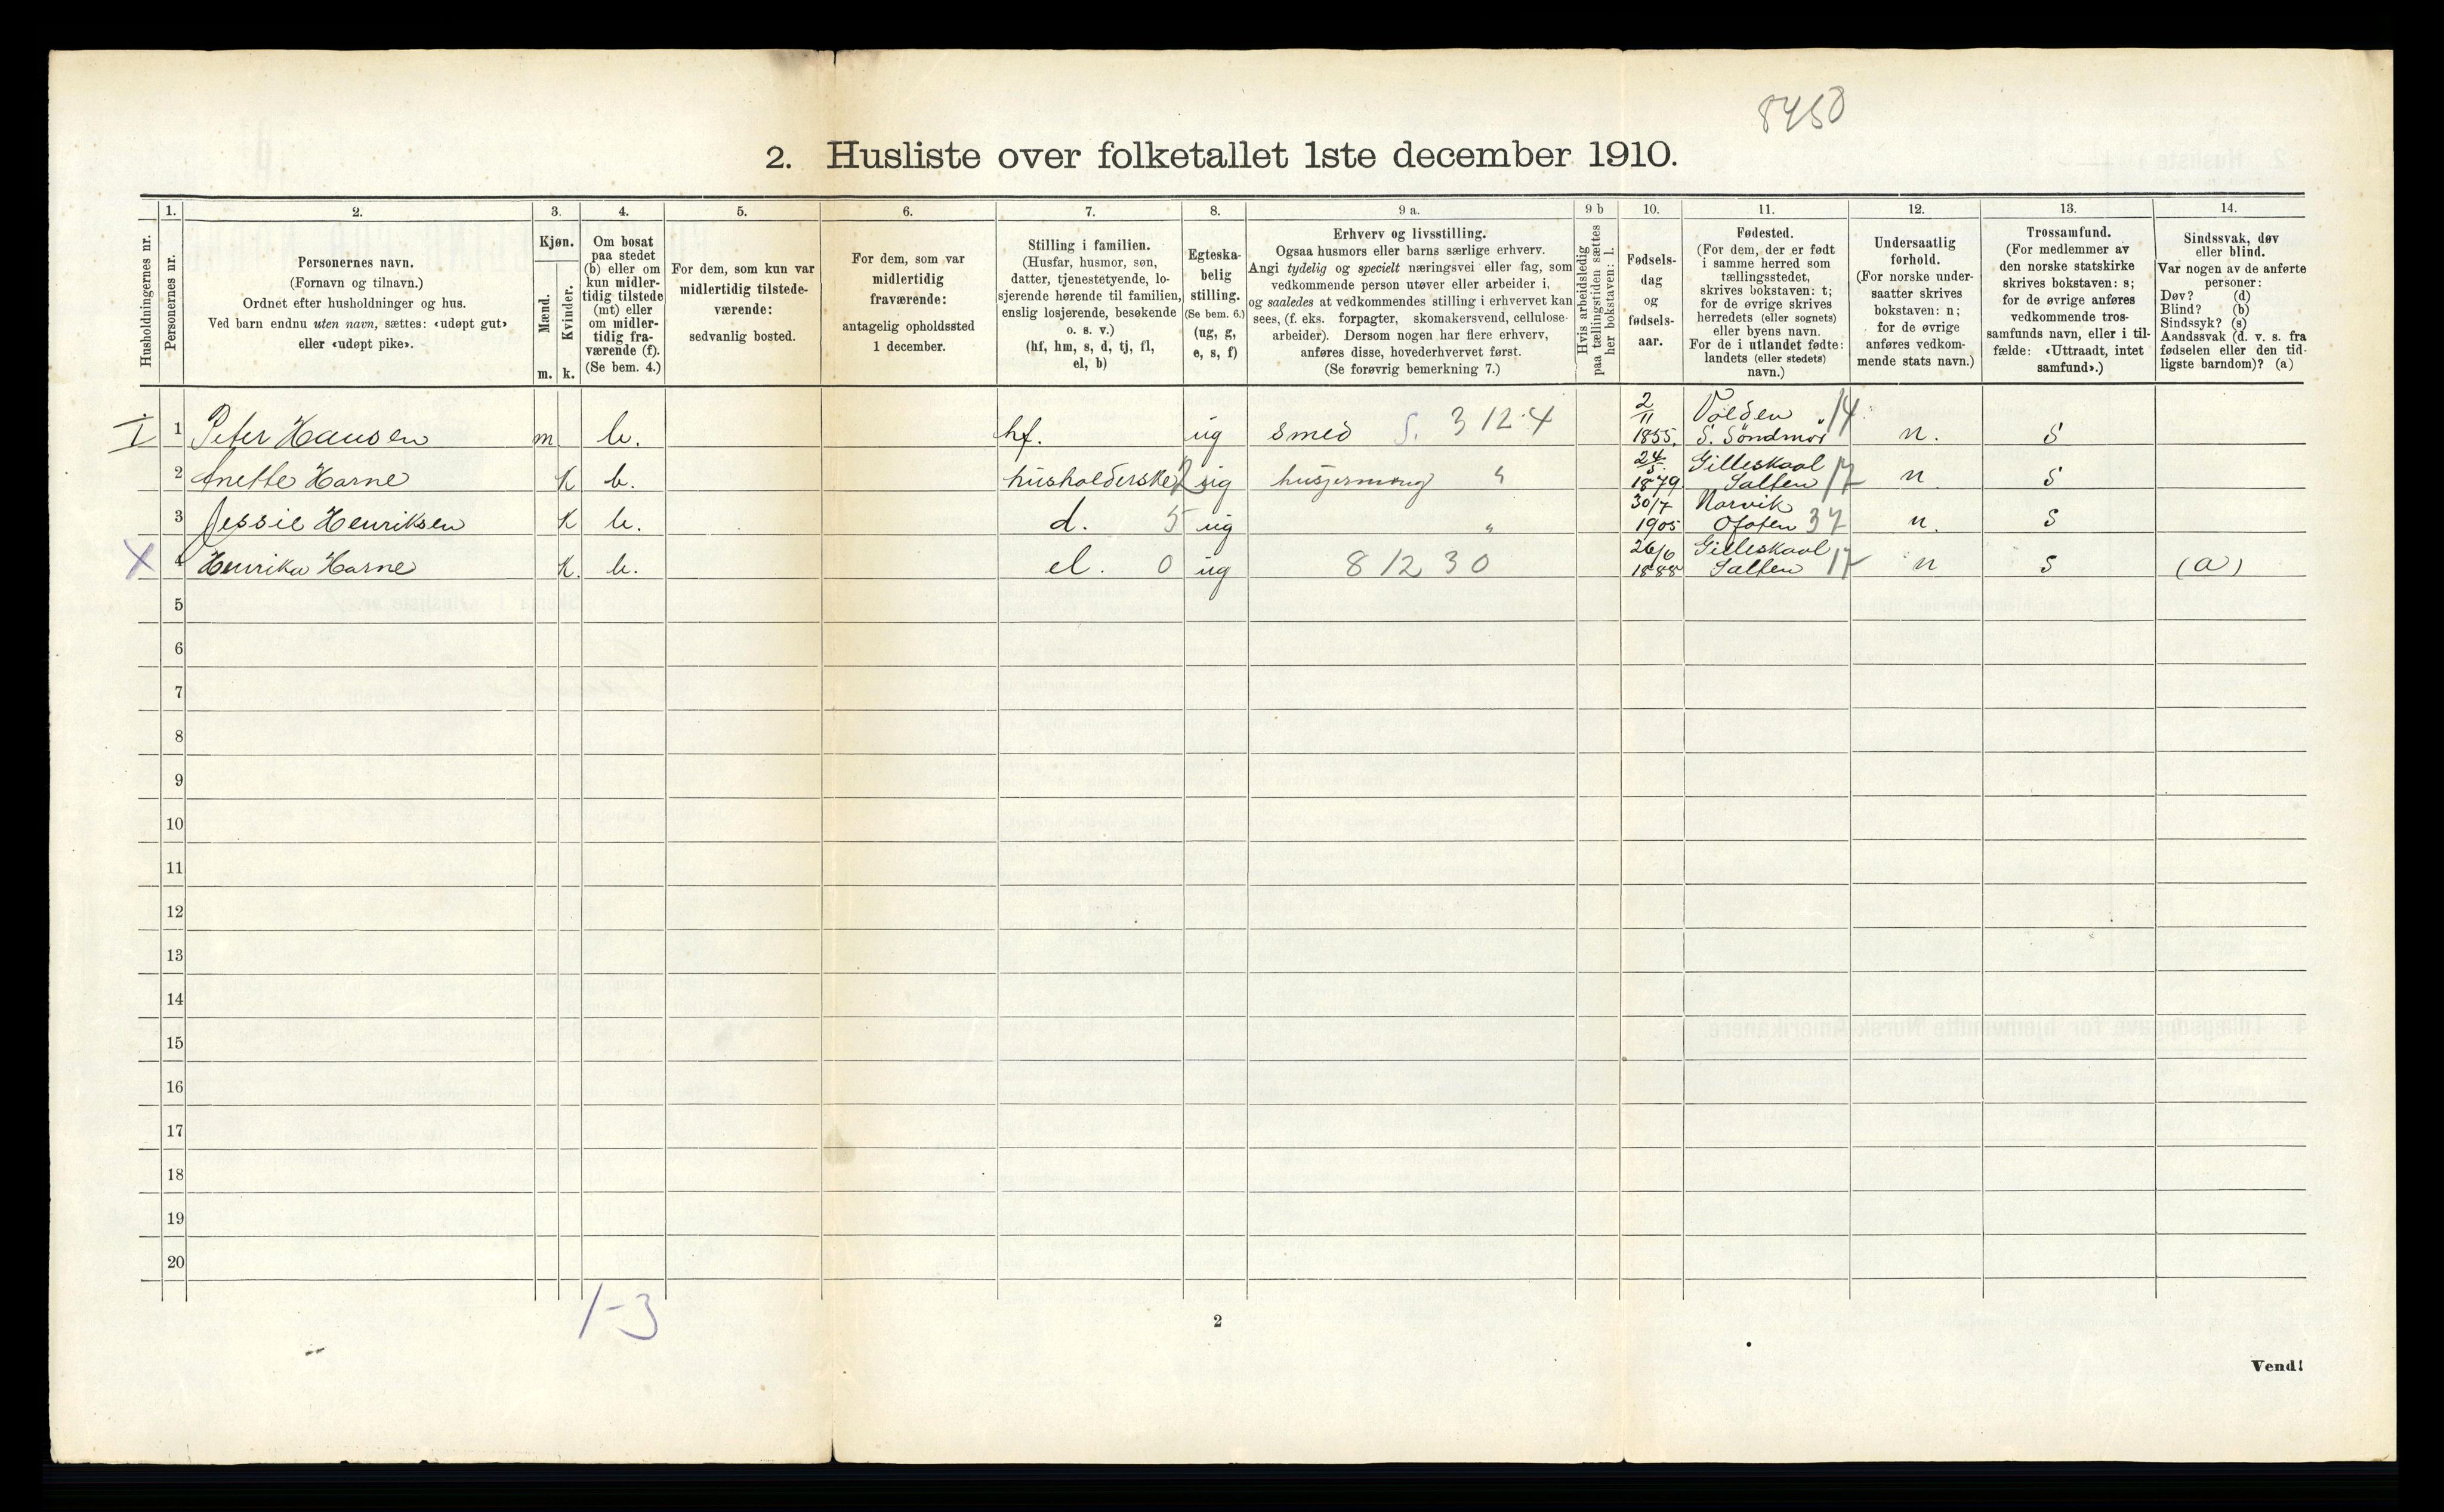 8450
2. Husliste over folketallet 1ste december 1910.
Husholdningernes nr.
1.
Personernes nr.
2.
Personernes navn.
(Fornavn og tilnavn.)
Ordnet efter husholdninger og hus.
Ved barn endnu uten navn, sættes: «udøpt gut»
eller «udøpt pike».
3.
Kjøn.
Mænd.
Kvinder.
m. k.
4.
Om bosat
paa stedet
(b) eller om
kun midler-
tidig tilstede
(mt) eller
om midler-
tidig fra-
værende (f).
(Se bem. 4.)
5.
For dem, som kun var
midlertidig tilstede-
værende:
sedvanlig bosted.
6.
For dem, som var
midlertidig
fraværende:
antagelig opholdssted
1 december.
7.
Stilling i familien.
(Husfar, husmor, søn,
datter, tjenestetyende, lo-
sjerende hørende til familien,
enslig losjerende, besøkende
o. s. v.)
(hf, hm, s, d, tj, fl,
el, b)
8.
Egteska-
belig
stilling.
(Se bem. 6.)
(ug, g,
e, s, f)
9 a.
Erhverv og livsstilling.
Ogsaa husmors eller barns særlige erhverv.
Angi tydelig og specielt næringsvei eller fag, som
vedkommende person utøver eller arbeider i,
og saaledes at vedkommendes stilling i erhvervet kan
sees, (f. eks. forpagter, skomakersvend, cellulose-
arbeider). Dersom nogen har flere erhverv,
anføres disse, hovederhvervet først.
(Se forøvrig bemerkning 7.)
9 b
Hvis arbeidsledig
paa tællingstiden sættes
her bokstaven: l.
10.
Fødsels-
dag
og
fødsels-
aar.
11.
Fødested.
(For dem, der er født
i samme herred som
tællingsstedet,
skrives bokstaven: t;
for de øvrige skrives
herredets (eller sognets)
eller byens navn.
For de i utlandet fødte:
landets (eller stedets)
navn.)
12.
Undersaatlig
forhold.
(For norske under-
saatter skrives
bokstaven: n;
for de øvrige
anføres vedkom-
mende stats navn.)
13.
Trossamfund.
(For medlemmer av
den norske statskirke
skrives bokstaven: s;
for de øvrige anføres
vedkommende tros-
samfunds navn, eller i til-
fælde: «Uttraadt, intet
samfund».)
14.
Sindssvak, døv
eller blind.
Var nogen av de anførte
personer:
Døv? (d)
Blind? (b)
Sindssyk? (s)
Aandssvak (d. v. s. fra
fødselen eller den tid-
ligste barndom)? (a)
I 1 Peter Hansen m. b. hf. ug smed S. 312.4 2/11 1855. Volden S. Söndmör 14 n. S
2 Anette Harne K b. husholderske 2 ug husjerning " 24/5. 1879 Gilleskaal Salten 17 n S
3 Jessie Henriksen K b. d. 5 ug " 30/7 1905 Narvik Ofoten 37 n. S
X 4 Henrika Harne K. b. el. 0 ug 81230 26/6 1888 Gilleskaal Salten 17 n S (a)
5
6
7
8
9
10
11
12
13
14
15
16
17
18
19
20
1-3
2
Vend!